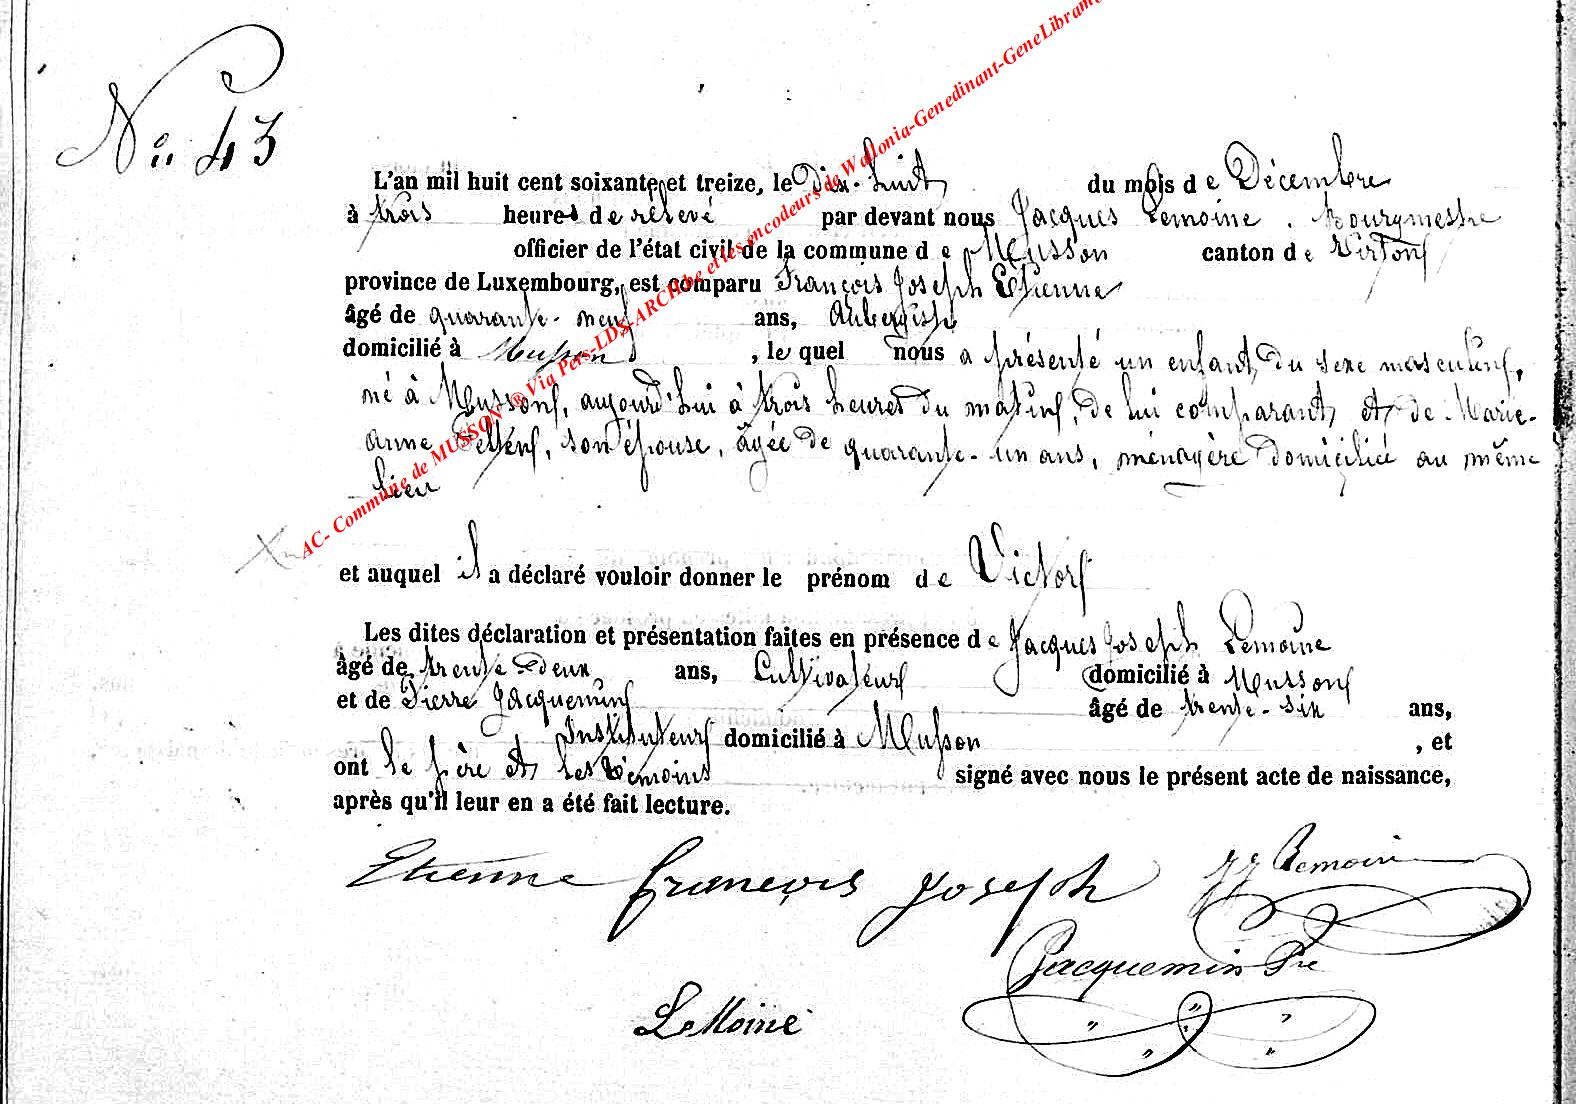 No 43
L'an mil huit cent soixante et treize, le dix-huit du mois de Décembre
à trois heures de relevé par devant nous Jacques Lemoine, Bourgmestre
officier de l'état civil de la commune de Musson canton de Virton
province de Luxembourg, est comparu François Joseph Etienne
âgé de quarante-neuf ans, Aubergiste
domicilié à Musson, le quel nous a présenté un enfant du sexe masculin,
né à Musson, aujourd'hui à trois heures du matin, de lui comparant et de Marie-
anne, son épouse, âgée de quarante-un ans, ménagère domiciliée au même
lieu
et auquel il a déclaré vouloir donner le prénom de Victor
Les dites déclaration et présentation faites en présence de Jacques Joseph Lemoine
âgé de trente-deux ans, Cultivateur domicilié à Musson
et de Pierre Jacquemin âgé de trente-six ans,
Instituteur domicilié à Musson, et
ont le père et les témoins signé avec nous le présent acte de naissance,
après qu'il leur en a été fait lecture.
Etienne françois Joseph JJ Lemoine
Jacquemin Pre
LeMoine
AC- Commune de MUSSON @ Via Pers-LDS-ARCH.be et les encodeurs de Wallonia-Genedinant-GeneLibram